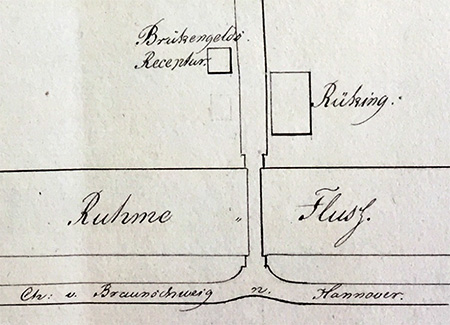 Brükengelds.
Receptur.
Rüking.
Ruhme „ Fluß.
Ch: v. Braunschweig n. Hannover.